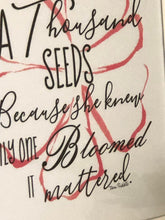 A Thousand
SEEDS
Because she knew
ONLY ONE Bloomed
IT mattered